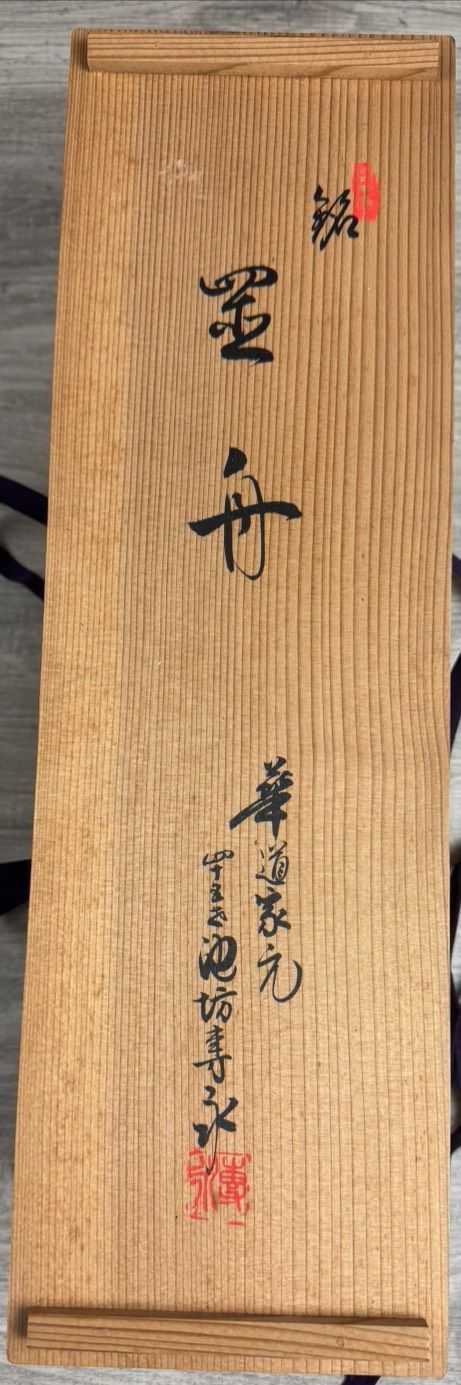 銘
舟
華道家元
四十五世池坊専永